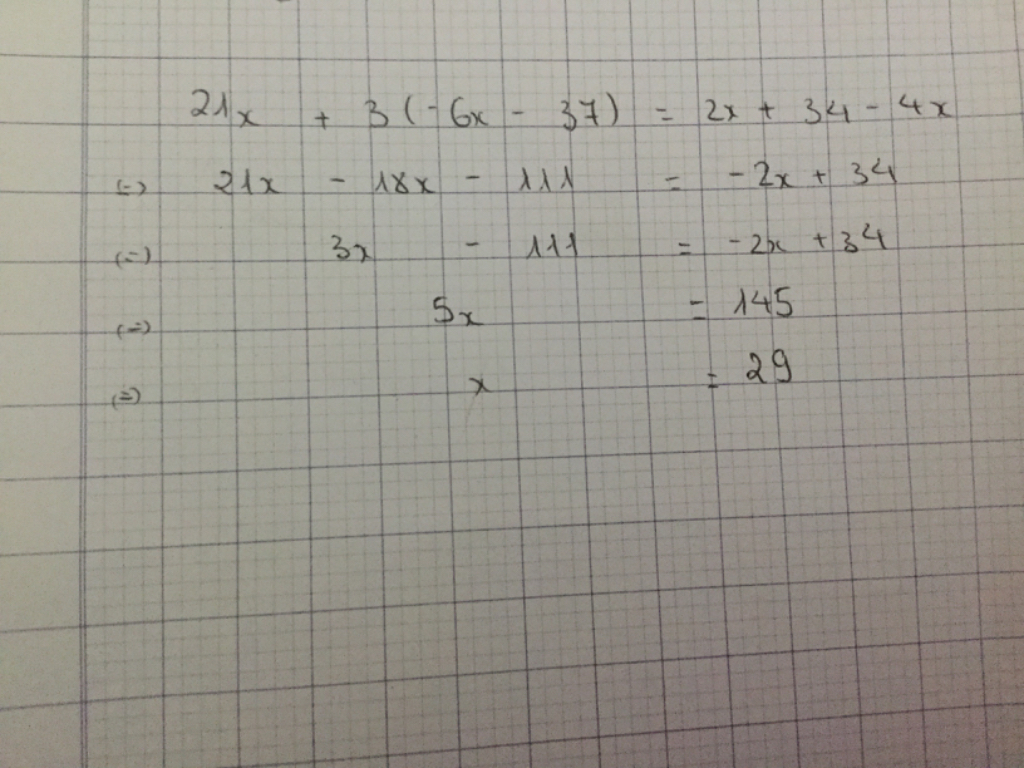 21x + 3(-6x - 37) = 2x + 34 - 4x
(=) 21x - 18x - 111 = -2x + 34
(=) 3x - 111 = -2x + 34
(=) 5x = 145
(=) x = 29